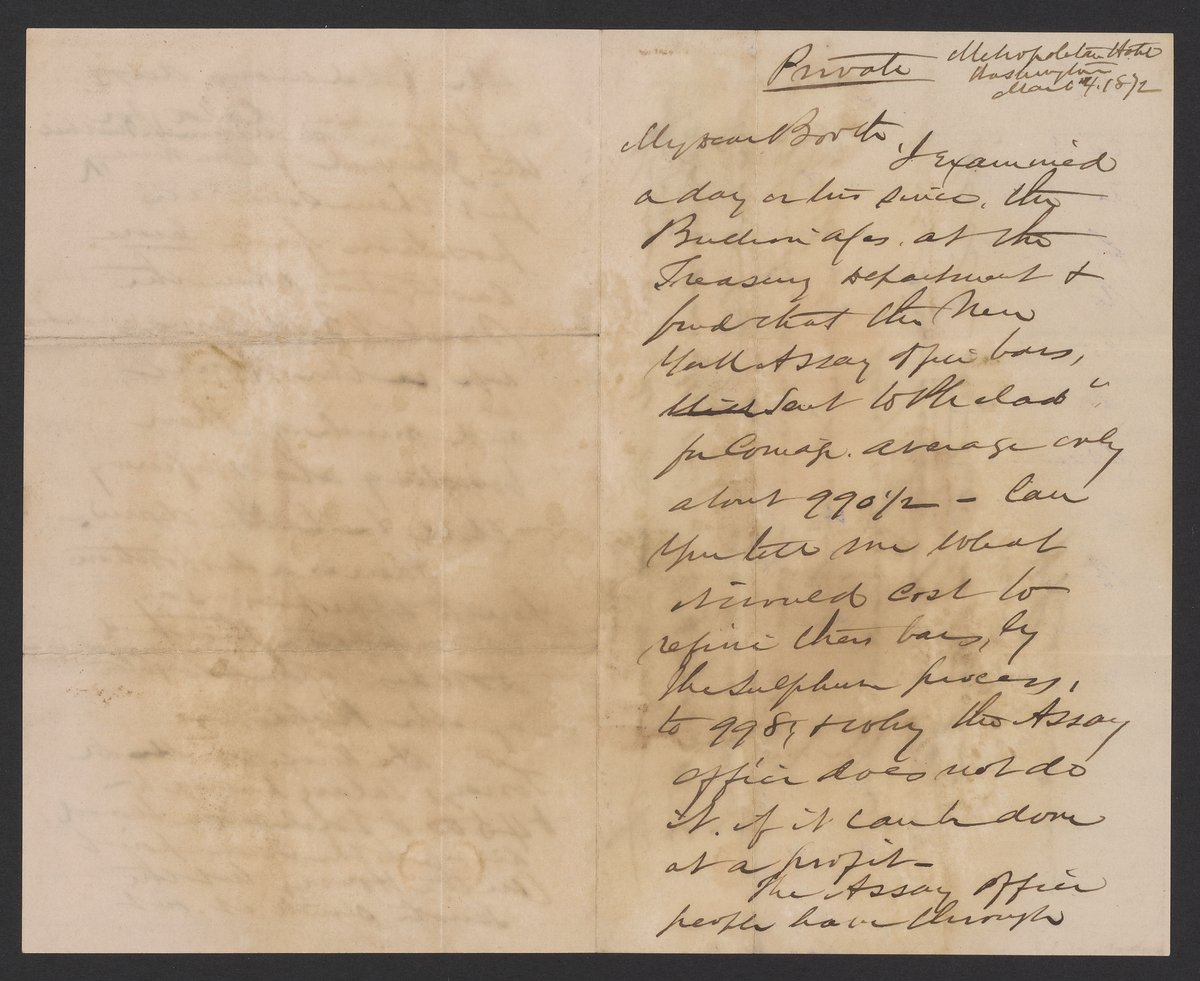 Private
Metropolitan Hotel
Washington
Mar 4. 1872
My dear Booth
I examined
a day or two since, the
Bullion a/cs. at the
Treasury Department &
find that the New
York Assay Office bars,
sent to Phelad"
for Coinage. average only
about 990 1/2 – Can
you tell me what
it would cost to
refine these bars, by
the sulphur process,
to 998, & why the Assay
office does not do
it. if it can be done
at a profit –
The Assay Office
people have through